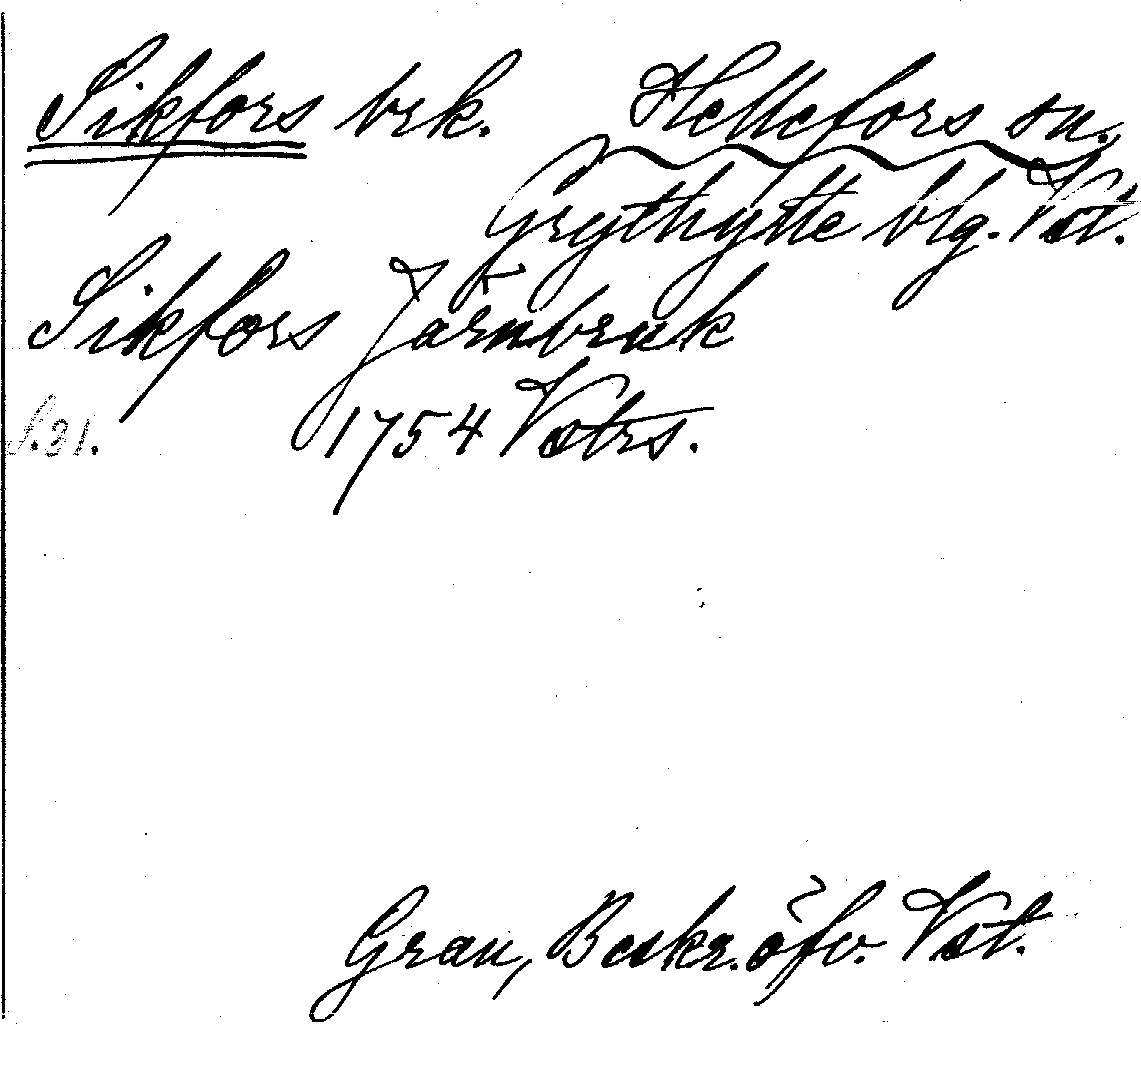 Sikfors brk. Hellefors sn.
Grythytte blg. Vst.
Sikfors Järnbruk
S.31. 1754 Vstrs.
Grau, Beskr. öfv. Vst.